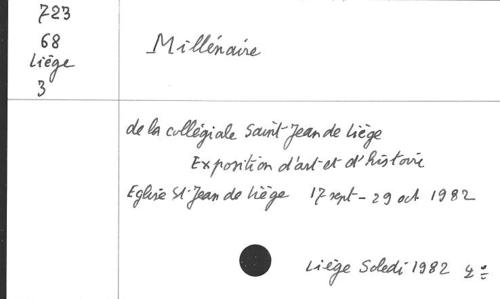 723
68
Liège
3
Millénaire
de la collégiale Saint-Jean de Liège
Exposition d'art et d'histoire
Eglise St Jean de Liège 17 sept - 29 oct 1982
Liège Soledi 1982 4°